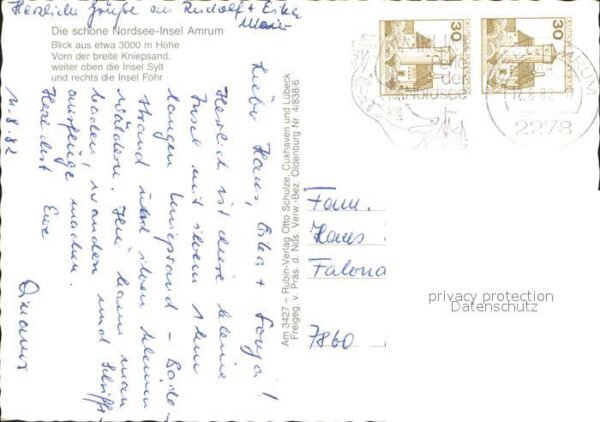 Herzliche Grüße an Rudolf + Erika
Maier
Die schöne Nordsee-Insel Amrum
Blick aus etwa 3000 m Höhe
Vorn der breite Kniepsand,
weiter oben die Insel Sylt
und rechts die Insel Föhr
11.8.82
Liebe Hans, Erika + Sonja!
Herrlich ist diese kleine
Insel mit ihrem 15 km
langen Kniepsand - Bade-
strand und ihren kleinen
Wäldern. Hier kann man
baden, wandern und Schiffs-
ausflüge machen.
Herzlichst Eure
Am 3427 – Rubin-Verlag Otto Schulze, Cuxhaven und Lübeck
Freigeg. v. Präs. d. Nds. Verw.-Bez. Oldenburg Nr. 4.838/6
30
30
DEUTSCHE BUNDESPOST
Nordsee
AMRUM
2278
Fam.
Hans
7860
privacy protection
Datenschutz